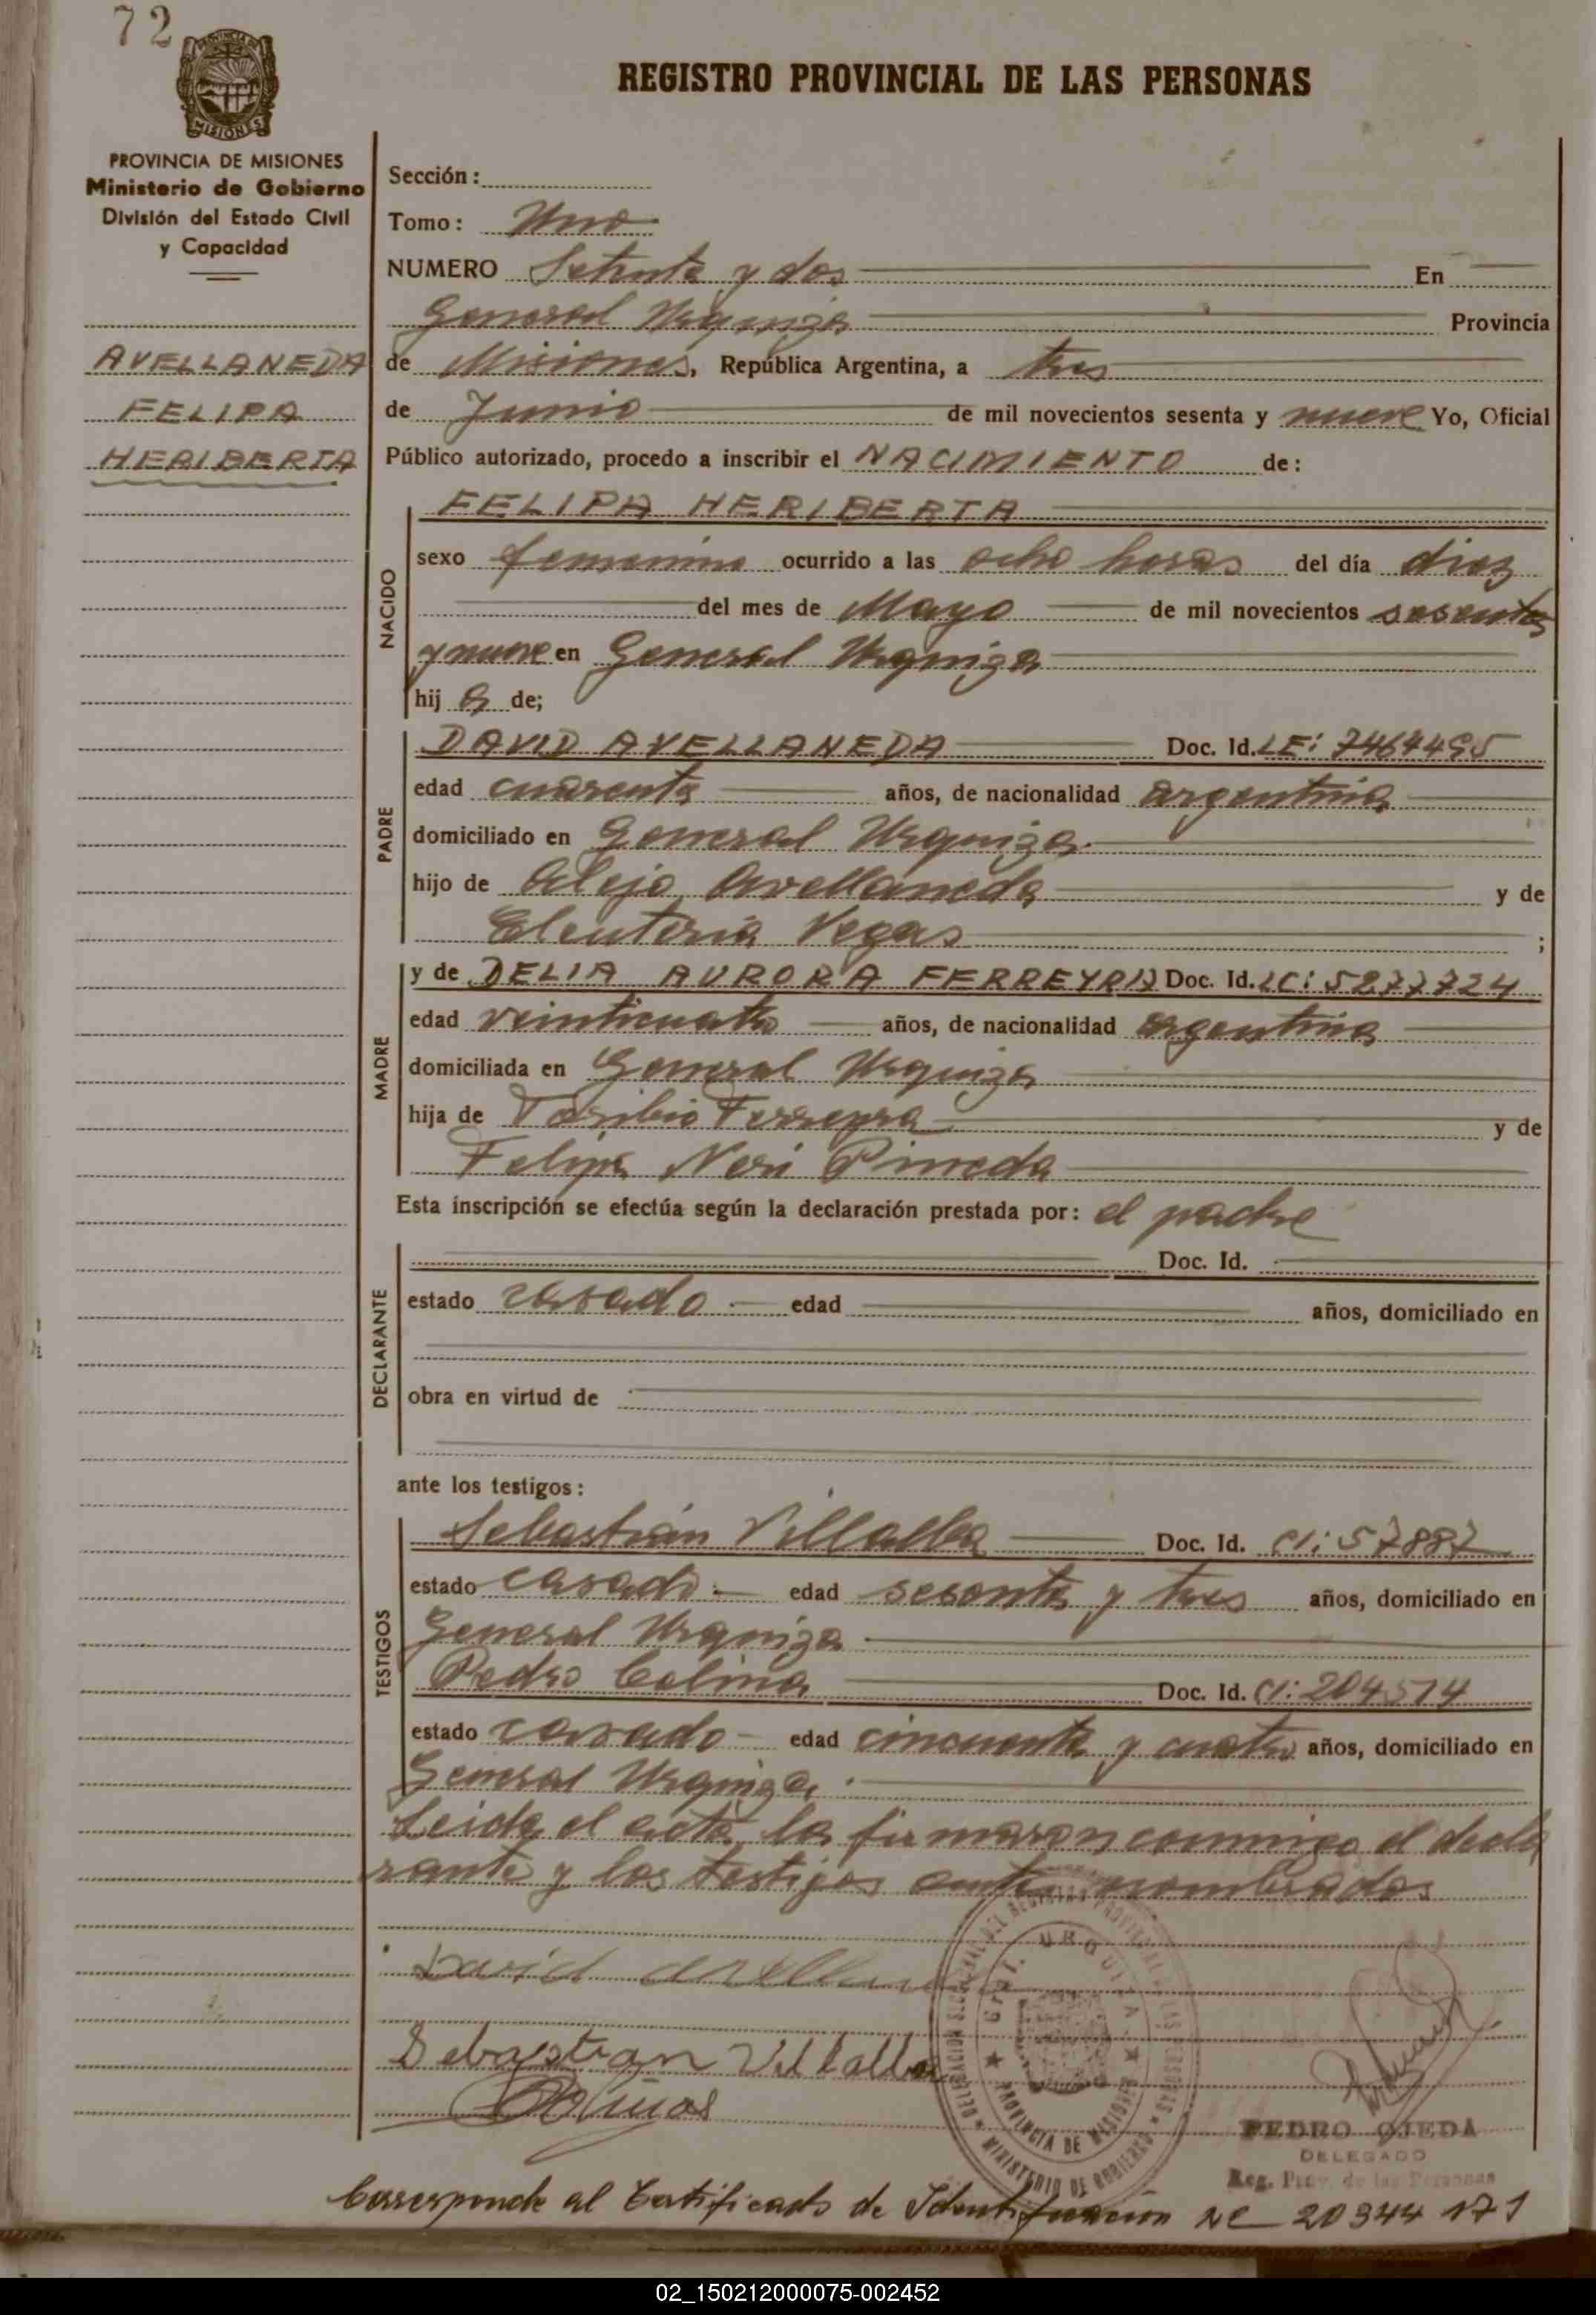 72
REGISTRO PROVINCIAL DE LAS PERSONAS
PROVINCIA DE MISIONES
MISIONES
PROVINCIA DE MISIONES
Ministerio de Gobierno
División del Estado Civil
y Capacidad
AVELLANEDA
FELIPA
HERIBERTA
Sección:
Tomo: Uno
NUMERO Setenta y dos En
General Urquiza Provincia
de Misiones, República Argentina, a tres
de Junio de mil novecientos sesenta y nueve Yo, Oficial
Público autorizado, procedo a inscribir el NACIMIENTO de:
NACIDO
FELIPA HERIBERTA
sexo femenino ocurrido a las ocho horas del día diez
del mes de Mayo de mil novecientos sesenta
y nueve en General Urquiza
hij a de;
PADRE
DAVID AVELLANEDA Doc. Id. LE: 7464495
edad cuarenta años, de nacionalidad argentina
domiciliado en General Urquiza.
hijo de Alejo Avellaneda y de
Eleuteria Vegas ;
MADRE
y de DELIA AURORA FERREYRA Doc. Id. LC: 5277724
edad veinticuatro años, de nacionalidad argentina
domiciliada en General Urquiza
hija de Toribio Ferreyra y de
Felipa Neri Pineda
Esta inscripción se efectúa según la declaración prestada por: el padre
DECLARANTE
Doc. Id.
estado casado edad años, domiciliado en
obra en virtud de
ante los testigos:
TESTIGOS
Sebastián Villalba Doc. Id. CI: 57887
estado casado edad sesenta y tres años, domiciliado en
General Urquiza
Pedro Colina Doc. Id. CI: 204514
estado casado edad cincuenta y cuatro años, domiciliado en
General Urquiza.
Leida el acta, la firmaron conmigo el decla
rante y los testigos ante nombrados
David
Sebastian Villalba
DELEGACION
Gral. URQUIZA
PROVINCIA DE MISIONES
MINISTERIO DE GOBIERNO
PEDRO OJEDA
DELEGADO
Reg. Prov. de las Personas
Corresponde al Certificado de Identificación No 20344 171
02_150212000075-002452